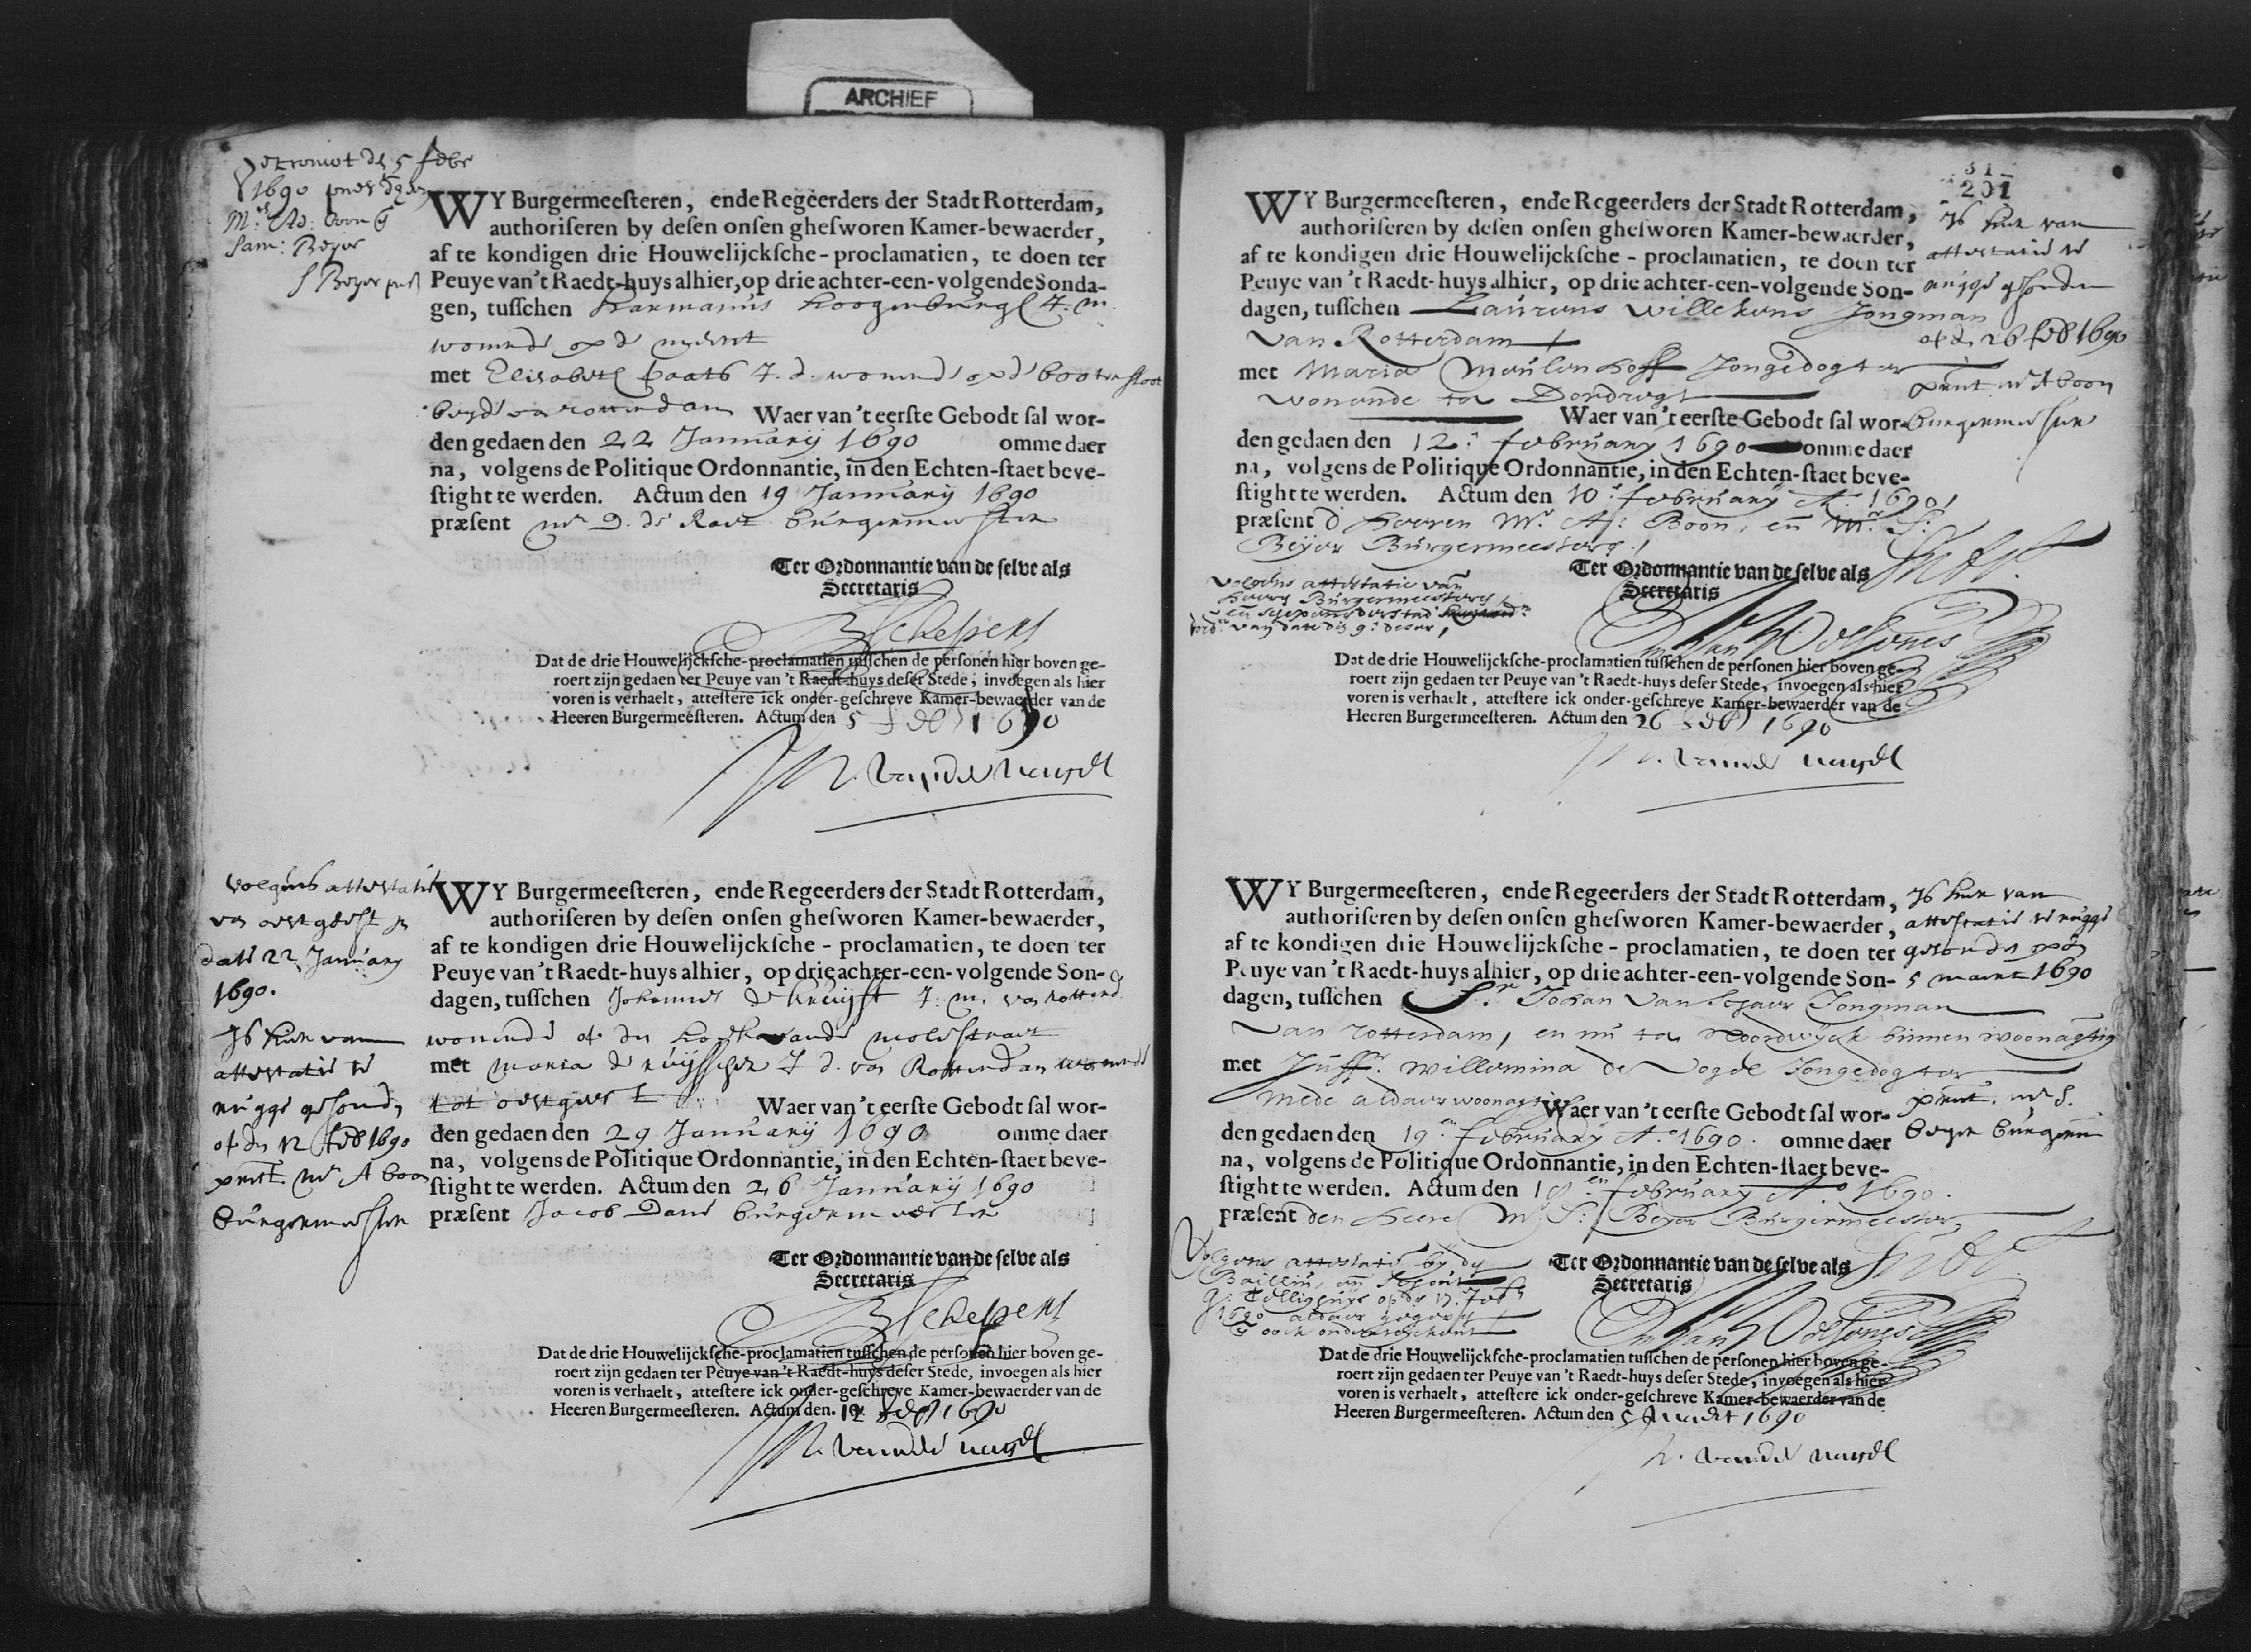 ARCHIEF
Getrouwt den 5 Febr
1690
Mr. Ad: Boon en
Sam: Beyer
S Beyer
WY Burgermeesteren, ende Regeerders der Stadt Rotterdam,
authoriseren by desen onsen ghesworen Kamer-bewaerder,
af te kondigen drie Houwelijcksche-proclamatien, te doen ter
Peuye van't Raedt-huys alhier, op drie achter-een-volgende Sonda-
gen, tusschen Harmanus Hoogenburgh J. m.
wonende op de
met Elisabeth Paats J. d. wonende op de boter sloot
beyde van rotterdam Waer van 't eerste Gebodt sal wor-
den gedaen den 22 Januarij 1690 omme daer
na, volgens de Politique Ordonnantie, in den Echten-staet beve-
stight te werden. Actum den 19 Januarij 1690
præsent Mr D. de Raet burgermeester
Ter Ordonnantie van de selve als
Secretaris
Dat de drie Houwelijcksche-proclamatien tusschen de personen hier boven ge-
roert zijn gedaen ter Peuye van 't Raedt-huys deser Stede, invoegen als hier
voren is verhaelt, attestere ick onder-geschreve Kamer-bewaerder van de
Heeren Burgermeesteren. Actum den 5 Feb 1690
volgens attestatie
van oestgeest in
date 22 Januarij
1690.
Is hier van
attestatie te
rugge gesonden
op den 12 Feb 1690
present Mr A boon
Burgermeester
WY Burgermeesteren, ende Regeerders der Stadt Rotterdam,
authoriseren by desen onsen ghesworen Kamer-bewaerder,
af te kondigen drie Houwelijcksche-proclamatien, te doen ter
Peuye van't Raedt-huys alhier, op drie achter-een-volgende Son-
dagen, tusschen Johannes de Kruijff J. m. van Rotterd.
wonende op de hoek vande molestraet
met maria de ruijsscher J d. van Rotterdam wonende
tot oestgeest Waer van 't eerste Gebodt sal wor-
den gedaen den 29 Januarij 1690 omme daer
na, volgens de Politique Ordonnantie, in den Echten-staet beve-
stight te werden. Actum den 26 Januarij 1690
præsent Jacob Dane burgermeester
Ter Ordonnantie van de selve als
Secretaris
Dat de drie Houwelijcksche-proclamatien tusschen de personen hier boven ge-
roert zijn gedaen ter Peuye van 't Raedt-huys deser Stede, invoegen als hier
voren is verhaelt, attestere ick onder-geschreve Kamer-bewaerder van de
Heeren Burgermeesteren. Actum den 12 Feb 1690
201
Is hier van
attestatie te
rugge gesonden
op den 26 Feb 1690
present Mr A boon
burgermeester
WY Burgermeesteren, ende Regeerders der Stadt Rotterdam,
authoriseren by desen onsen ghesworen Kamer-bewaerder,
af te kondigen drie Houwelijcksche-proclamatien, te doen ter
Peuye van 't Raedt-huys alhier, op drie achter-een-volgende Son-
dagen, tusschen Laurens Willekens Jongman
van Rotterdam
met Maria Meulenhoff Jongedogter
wonende tot Dordregt
Waer van 't eerste Gebodt sal wor-
den gedaen den 12: february 1690 omme daer
na, volgens de Politique Ordonnantie, in den Echten-staet beve-
stight te werden. Actum den 10: february Ao. 1690
præsent d' heeren Mr. A: Boon, en Mr. S:
Beijer Burgermeesters.
volgens attestatie van
heeren Burgermeesters
en schepenen der stad
dord. van date den 9: deser,
Ter Ordonnantie van de selve als
Secretaris
Dat de drie Houwelijcksche-proclamatien tusschen de personen hier boven ge-
roert zijn gedaen ter Peuye van 't Raedt-huys deser Stede, invoegen als hier
voren is verhaelt, attestere ick onder-geschreve Kamer-bewaerder van de
Heeren Burgermeesteren. Actum den 26 Feb 1690
Is hier van
attestatie te rugge
gesonden op den
5 maert 1690
present. Mr S.
Beyer burgerm
WY Burgermeesteren, ende Regeerders der Stadt Rotterdam,
authoriseren by desen onsen ghesworen Kamer-bewaerder,
af te kondigen drie Houwelijcksche-proclamatien, te doen ter
Peuye van 't Raedt-huys alhier, op drie achter-een-volgende Son-
dagen, tusschen Sr. Johan van Jongman
van rotterdam, en nu tot Noordwijck binnen woonagtig
met Juffr. Willemina de Vogel Jongedogter
mede aldaer woonagtig Waer van 't eerste Gebodt sal wor-
den gedaen den 19en february Ao. 1690. omme daer
na, volgens de Politique Ordonnantie, in den Echten-staet beve-
stight te werden. Actum den 18en february Ao. 1690.
præsent den heere Mr. S: Beyer Burgermeester,
Volgens attestatie by den
Bailliu, en Schout
op den 17. Feb
1690 aldaer
Ter Ordonnantie van de selve als
Secretaris
Dat de drie Houwelijcksche-proclamatien tusschen de personen hier boven ge-
roert zijn gedaen ter Peuye van 't Raedt-huys deser Stede, invoegen als hier
voren is verhaelt, attestere ick onder-geschreve Kamer-bewaerder van de
Heeren Burgermeesteren. Actum den 5 Maert 1690